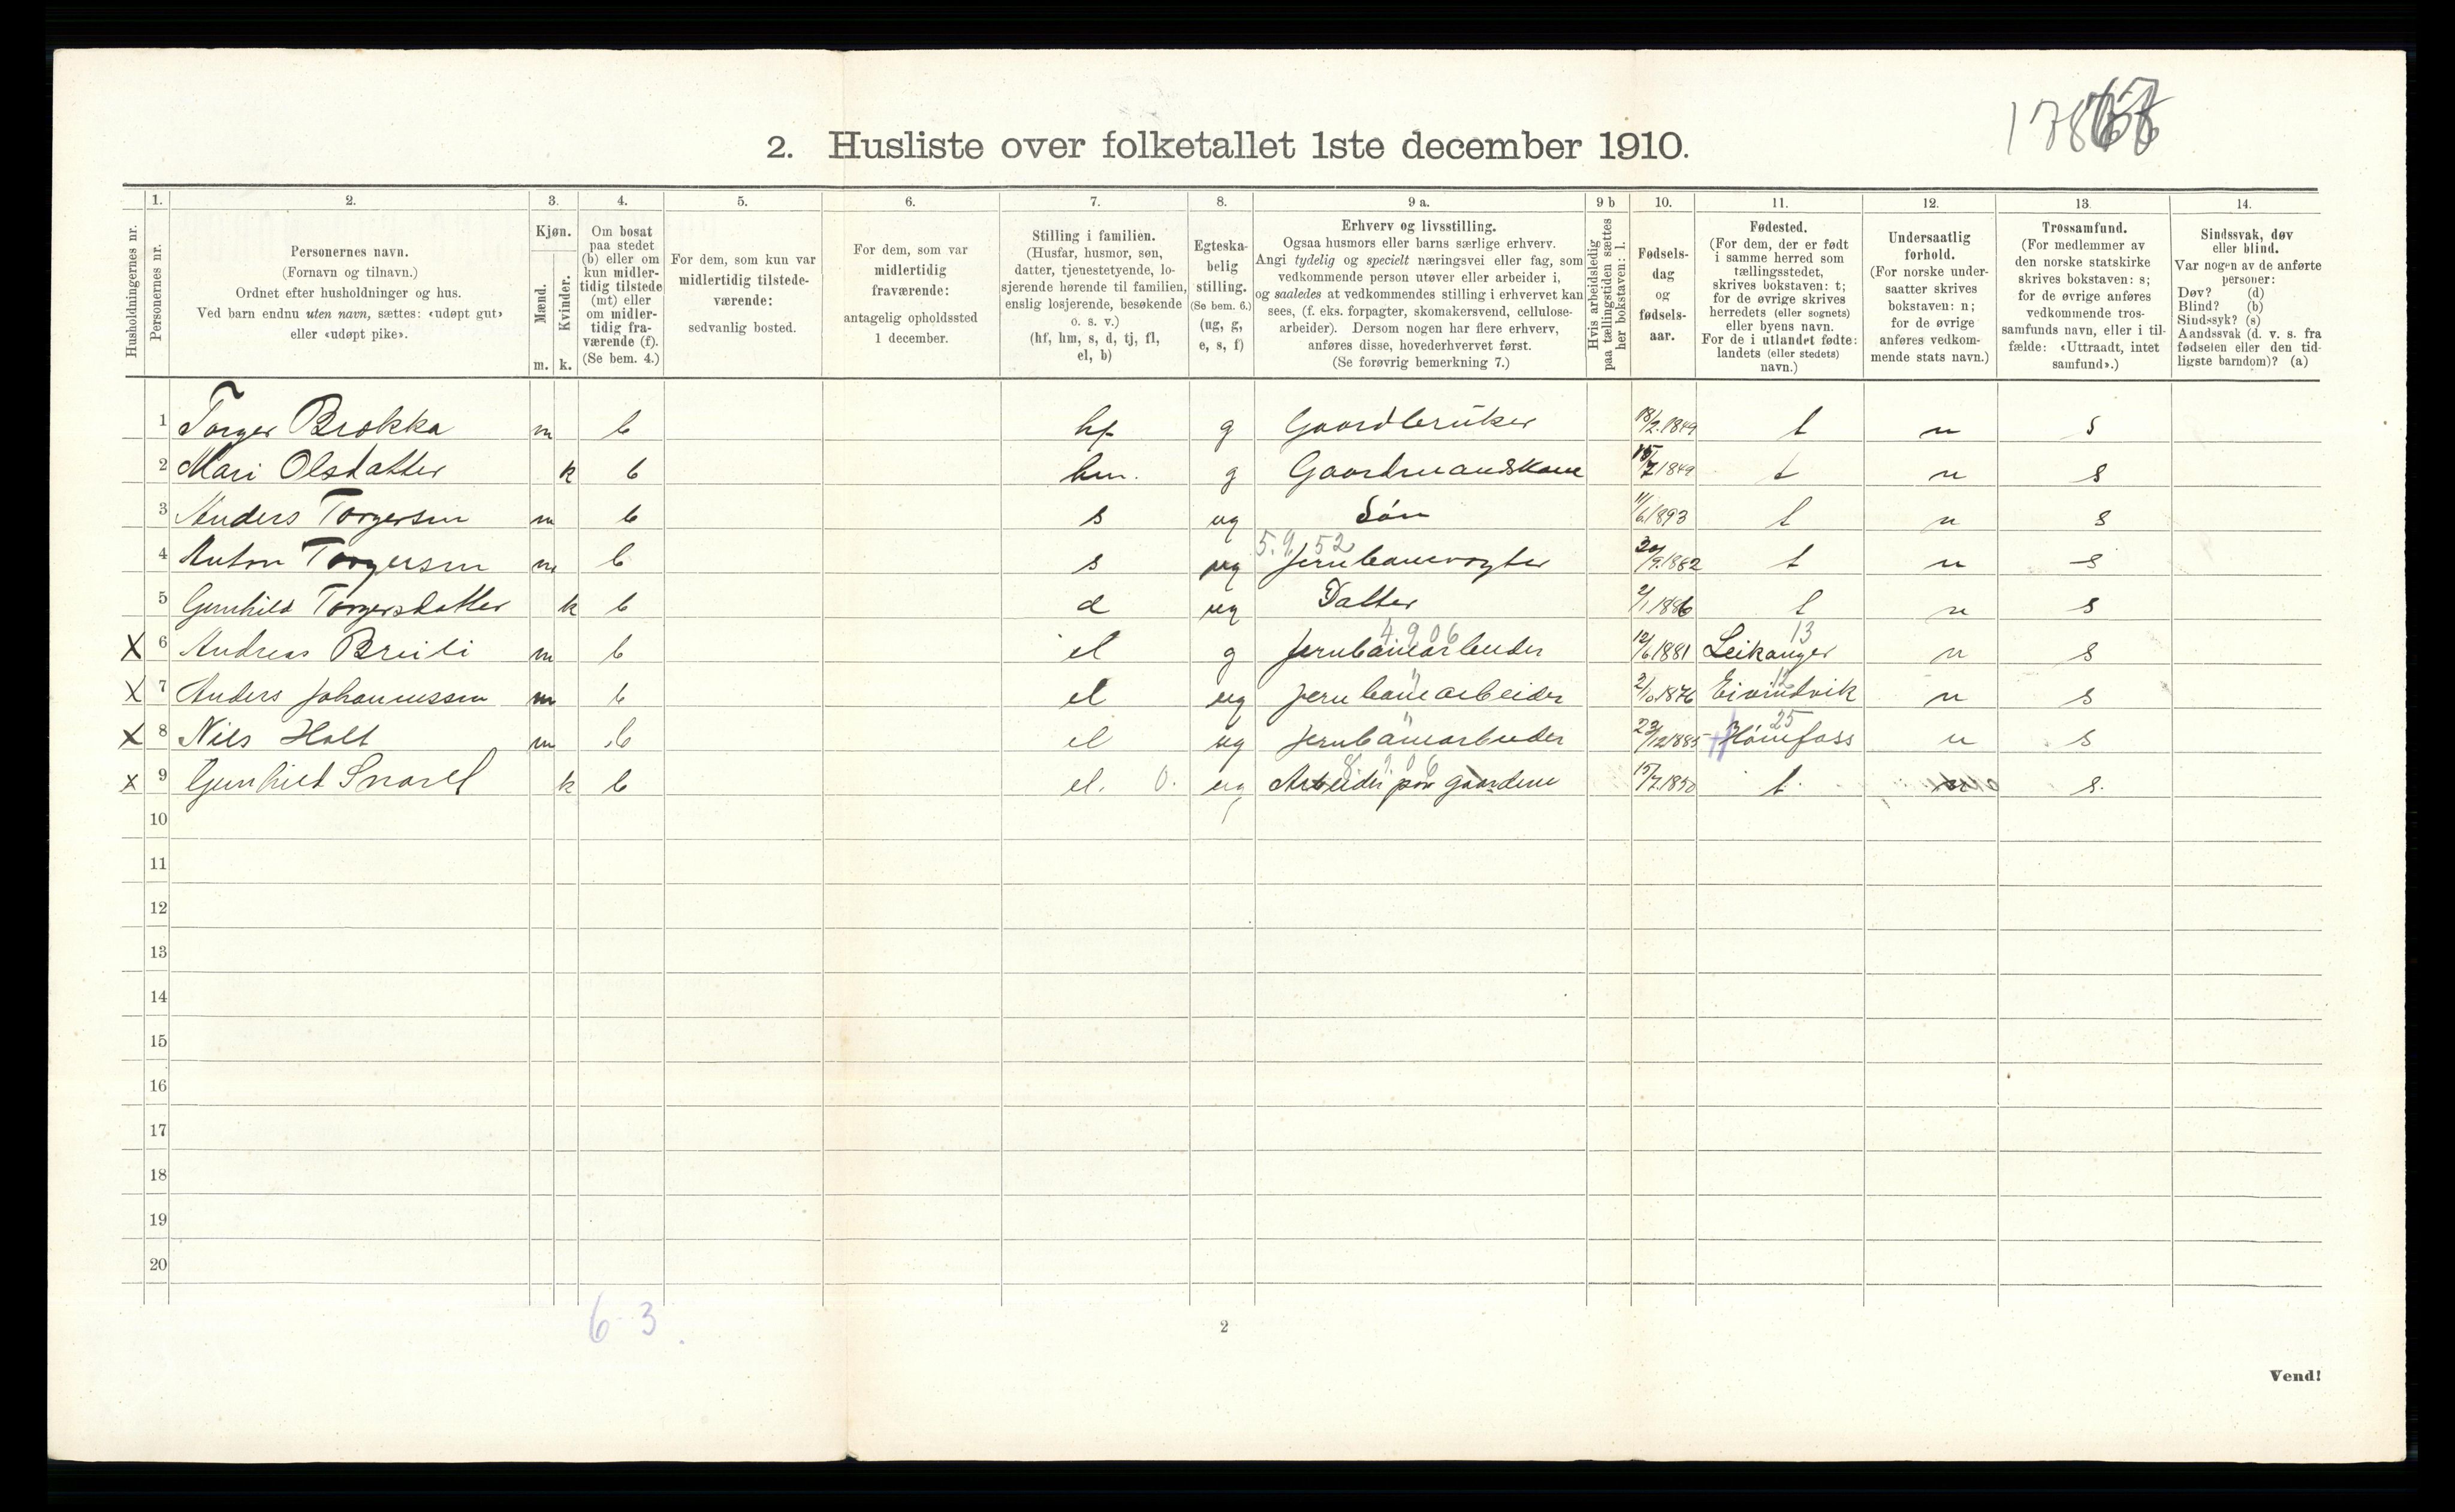 2. Husliste over folketallet 1ste december 1910.
Husholdningernes nr.
1. Personernes nr.
2. Personernes navn.
(Fornavn og tilnavn.)
Ordnet efter husholdninger og hus.
Ved barn endnu uten navn, sættes: «udøpt gut»
eller «udøpt pike».
3. Kjøn.
Mænd. m.
Kvinder. k.
4. Om bosat
paa stedet
(b) eller om
kun midler-
tidig tilstede
(mt) eller
om midler-
tidig fra-
værende (f).
(Se bem. 4.)
5. For dem, som kun var
midlertidig tilstede-
værende:
sedvanlig bosted.
6. For dem, som var
midlertidig
fraværende:
antagelig opholdssted
1 december.
7. Stilling i familien.
(Husfar, husmor, søn,
datter, tjenestetyende, lo-
sjerende hørende til familien,
enslig losjerende, besøkende
o. s. v.)
(hf, hm, s, d, tj, fl,
el, b)
8. Egteska-
belig
stilling.
(Se bem. 6.)
(ug, g,
e, s, f)
9 a. Erhverv og livsstilling.
Ogsaa husmors eller barns særlige erhverv.
Angi tydelig og specielt næringsvei eller fag, som
vedkommende person utøver eller arbeider i,
og saaledes at vedkommendes stilling i erhvervet kan
sees, (f. eks. forpagter, skomakersvend, cellulose-
arbeider). Dersom nogen har flere erhverv,
anføres disse, hovederhvervet først.
(Se forøvrig bemerkning 7.)
9 b Hvis arbeidsledig
paa tællingstiden sættes
her bokstaven: l.
10. Fødsels-
dag
og
fødsels-
aar.
11. Fødested.
(For dem, der er født
i samme herred som
tællingsstedet,
skrives bokstaven: t;
for de øvrige skrives
herredets (eller sognets)
eller byens navn.
For de i utlandet fødte:
landets (eller stedets)
navn.)
12. Undersaatlig
forhold.
(For norske under-
saatter skrives
bokstaven: n;
for de øvrige
anføres vedkom-
mende stats navn.)
13. Trossamfund.
(For medlemmer av
den norske statskirke
skrives bokstaven: s;
for de øvrige anføres
vedkommende tros-
samfunds navn, eller i til-
fælde: «Uttraadt, intet
samfund».)
14. Sindssvak, døv
eller blind.
Var nogen av de anførte
personer:
Døv? (d)
Blind? (b)
Sindssyk? (s)
Aandssvak (d. v. s. fra
fødselen eller den tid-
ligste barndom)? (a)
1 Torger Brokka m b hf g Gaardbruker 18/2.1849 t n s
2 Mari Olsdatter k b hm. g Gaardmandskone 15/7 1849 t n s
3 Anders Torgersen m b s ug Søn 11/6 1893 t n s
5.9.52
4 Anton Torgersen m b s ug Jernbanevogter 20/9.1882 t n s
5 Gunhild Torgersdatter k b d ug Datter 2/1.1886 t n s
4.9.06 13
X 6 Andreas Breili m b el g Jernbanearbeider 12/6.1881 Leikanger n s
" 12
X 7 Anders Johannessen m b el ug Jernbanearbeider 2/10.1876 Eivindvik n s
" 25
X 8 Niels Holt m b el ug Jernbanearbeider 23/12 1885 Hønefoss n s
8 9 06
x 9 Gunhild k b el. 0. ug Arbeider paa gaardene 15/7.1850 t. n s.
10
11
12
13
14
15
16
17
18
19
20
6-3
2
Vend!